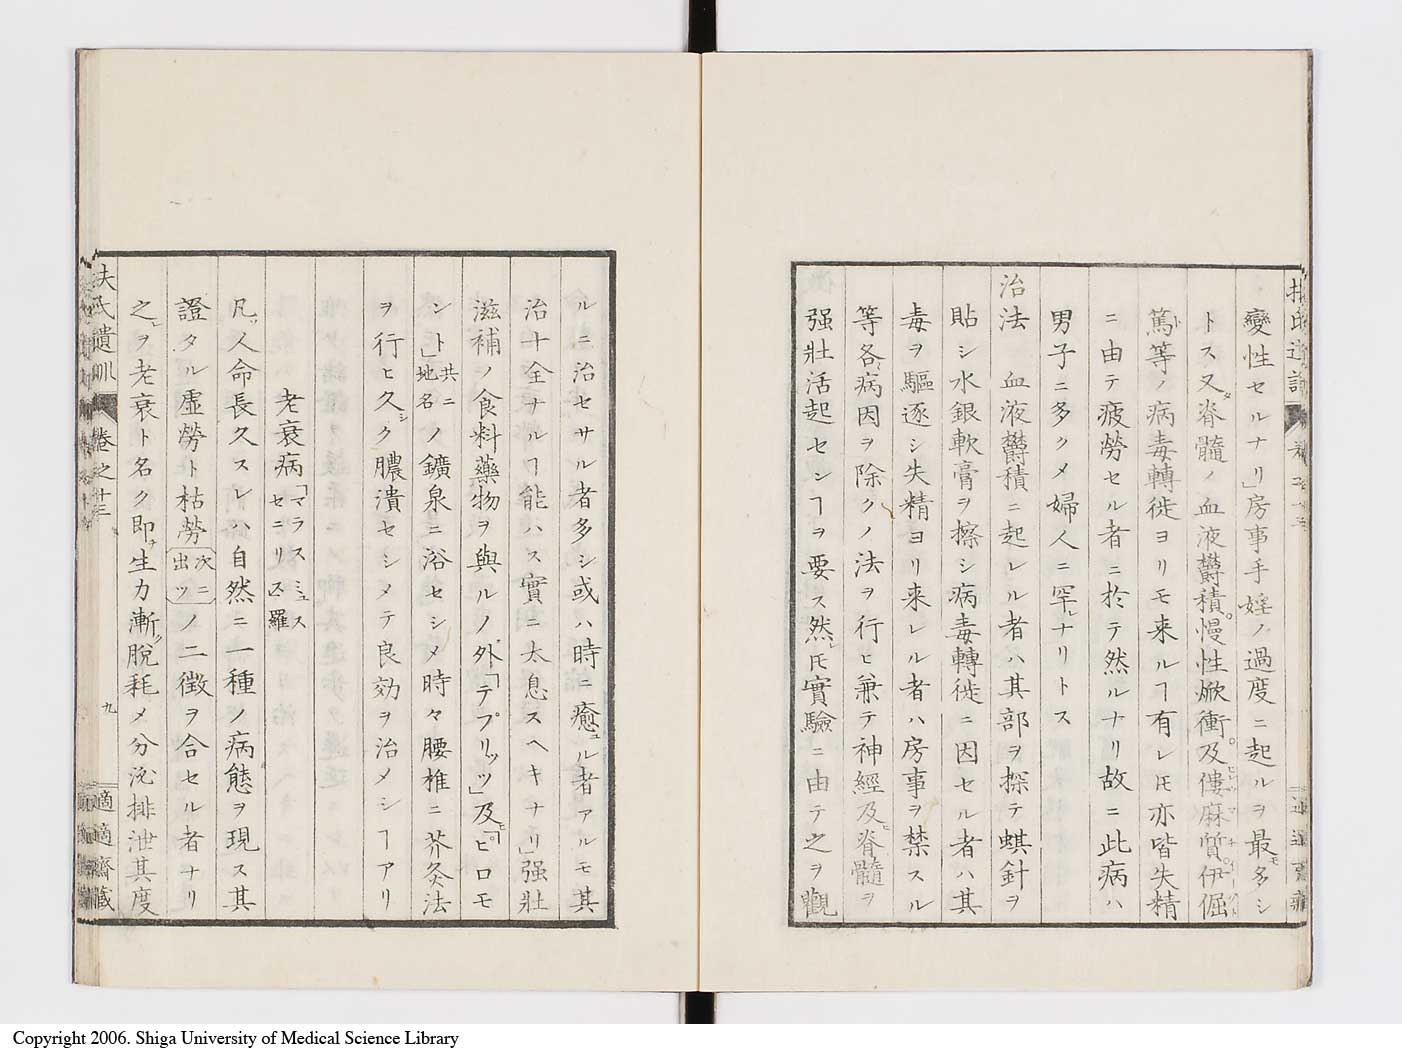 變性セルナリ」房事手婬ノ過度ニ起ルヲ最モ多シ
トス又脊髓ノ血液欝積。慢性焮衝。及ヒ僂麻質。伊倔
篤等ノ病毒轉徙ヨリモ来ルヿ有レ𪜈亦皆失精
ニ由テ疲勞セル者ニ於テ然ルナリ故ニ此病ハ
男子ニ多クメ婦人ニ罕ルナリトス
治法 血液欝積ニ起レル者ハ其部ヲ探テ蜞針ヲ
貼シ水銀軟膏ヲ擦シ病毒轉徙ニ因セル者ハ其
毒ヲ驅逐シ失精ヨリ来レル者ハ房事ヲ禁スル
等各病因ヲ除クノ法ヲ行ヒ兼テ神經及ヒ脊髓ヲ
强壯活起センヿヲ要ス然レ𪜈實驗ニ由テ之ヲ觀
ルニ治セサル者多シ或ハ時ニ癒ユル者アルモ其
治十全ナルヿ能ハス實ニ太息スヘキナリ」强壯
滋補ノ食料藥物ヲ與ルノ外「テプリッツ」及ヒ「ヒロモ
ント」共ニ地名ノ鑛泉ニ浴セシメ時々腰椎ニ芥灸法
ヲ行ヒ久シク膿潰セシメテ良効ヲ治メシヿアリ
老衰病「マラスミュス セニリス」羅
凡ソ人命長久スレハ自然ニ一種ノ病態ヲ現ス其
證タル虛勞ト枯勞次ニ出ツノ二徴ヲ合セル者ナリ
之レヲ老衰ト名ク即チ生力漸ク脫耗メ分泌排泄其度
扶氏遺訓 卷之十三 九 適適齋藏